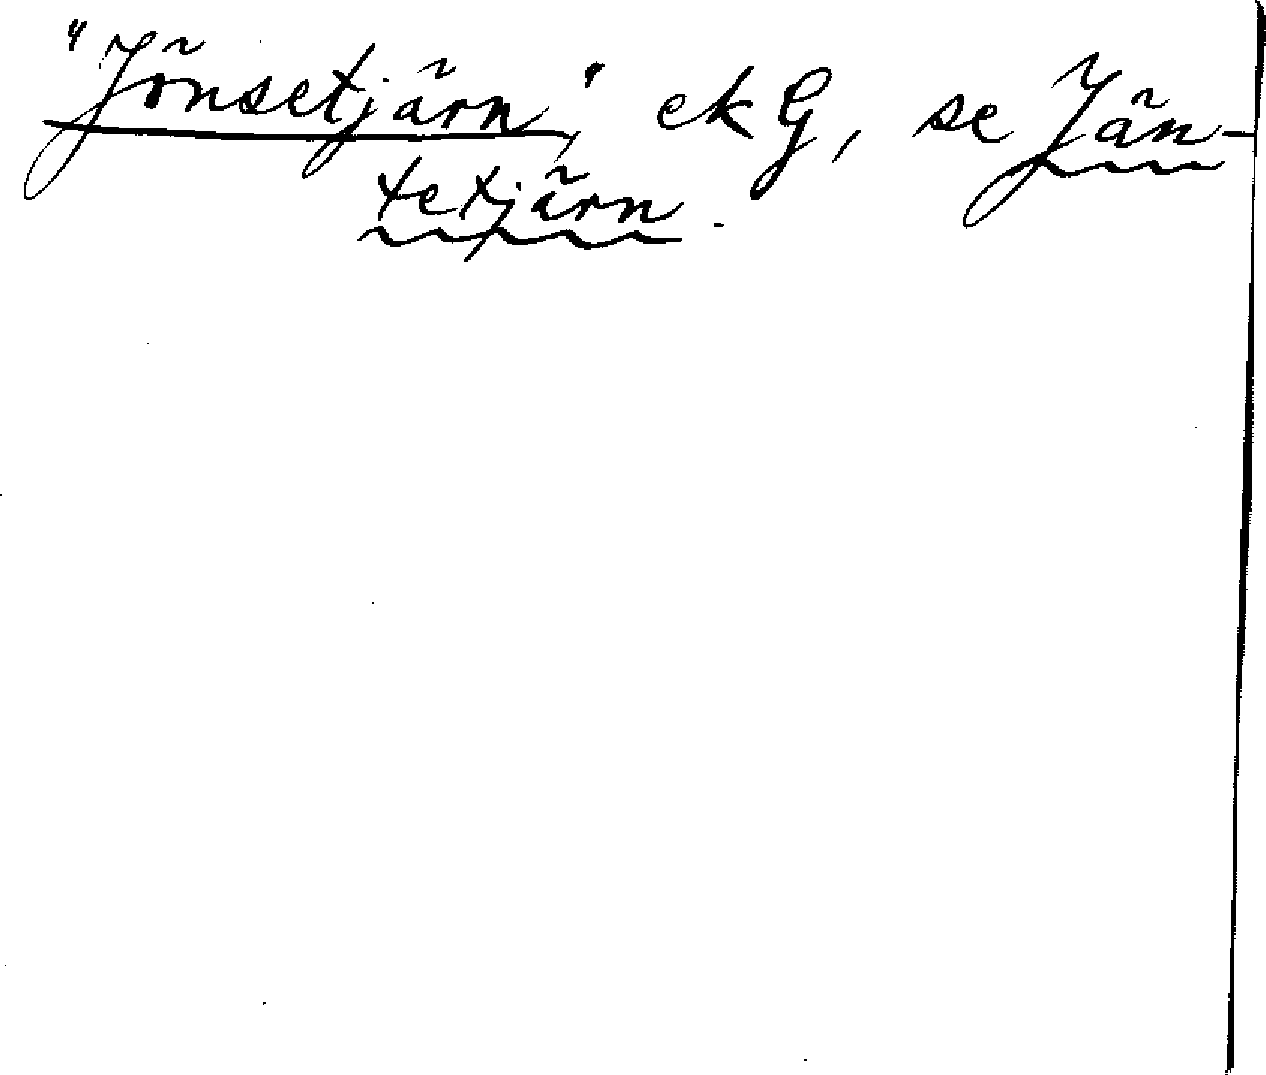 "Jönsetjärn", ek G, se Jän-
tetjärn.